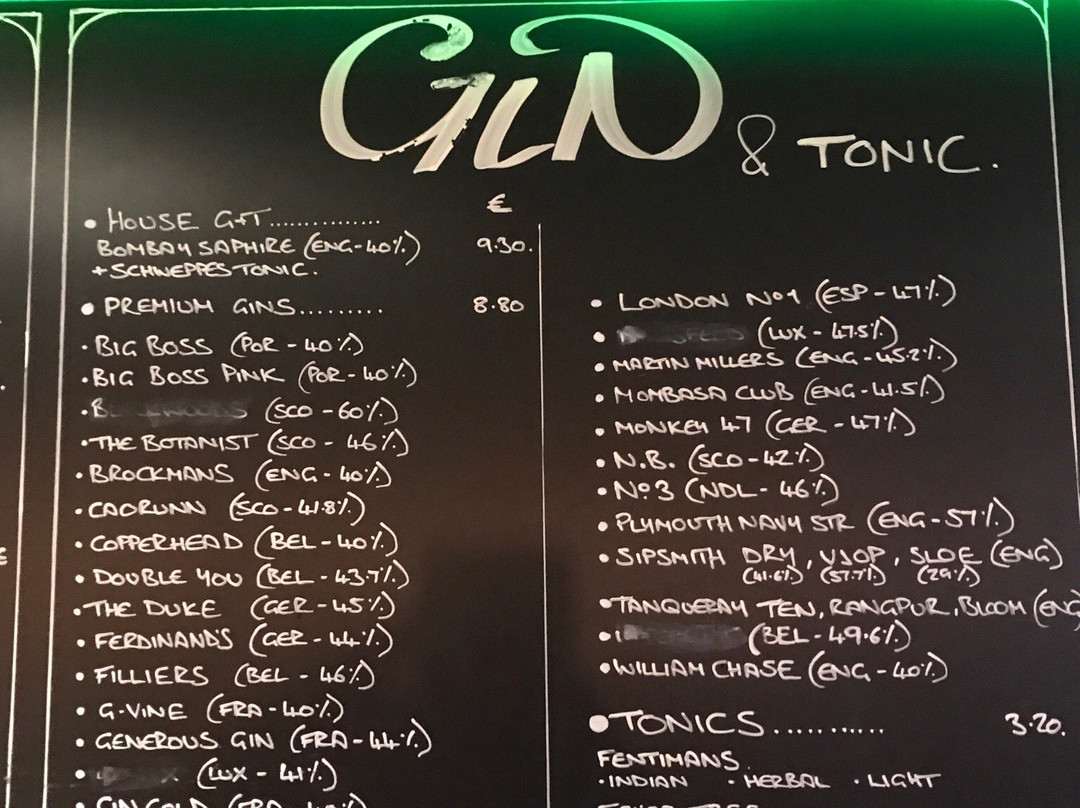 GIN & TONIC.
€
• HOUSE G+T..............
BOMBAY SAPHIRE (ENG-40%) 9.30.
+ SCHWEPPES TONIC.
• PREMIUM GINS......... 8.80
• BIG BOSS (POR - 40%)
• BIG BOSS PINK (POR - 40%)
• (SCO - 60%)
• THE BOTANIST (SCO - 46%)
• BROCKMANS (ENG - 40%)
• CAORUNN (SCO - 41.8%)
• COPPERHEAD (BEL - 40%)
• DOUBLE YOU (BEL - 43.7%)
• THE DUKE (GER - 45%)
• FERDINAND'S (GER - 44%)
• FILLIERS (BEL - 46%)
• G-VINE (FRA - 40%)
• GENEROUS GIN (FRA - 44%)
• (LUX - 41%)
• GIN GOLD
• LONDON Nº1 (ESP - 47%)
• (LUX - 47.5%)
• MARTIN MILLERS (ENG - 45.2%)
• MOMBASA CLUB (ENG - 41.5%)
• MONKEY 47 (GER - 47%)
• N.B. (SCO - 42%)
• Nº3 (NDL - 46%)
• PLYMOUTH NAVY STR (ENG - 57%)
• SIPSMITH DRY, VJOP, SLOE (ENG)
(41.6%) (57.7%) (29%)
• TANQUERAY TEN, RANGPUR, BLOOM (ENG
• (BEL - 49.6%)
• WILLIAM CHASE (ENG - 40%)
• TONICS.......... 3.20.
FENTIMANS
• INDIAN • HERBAL • LIGHT